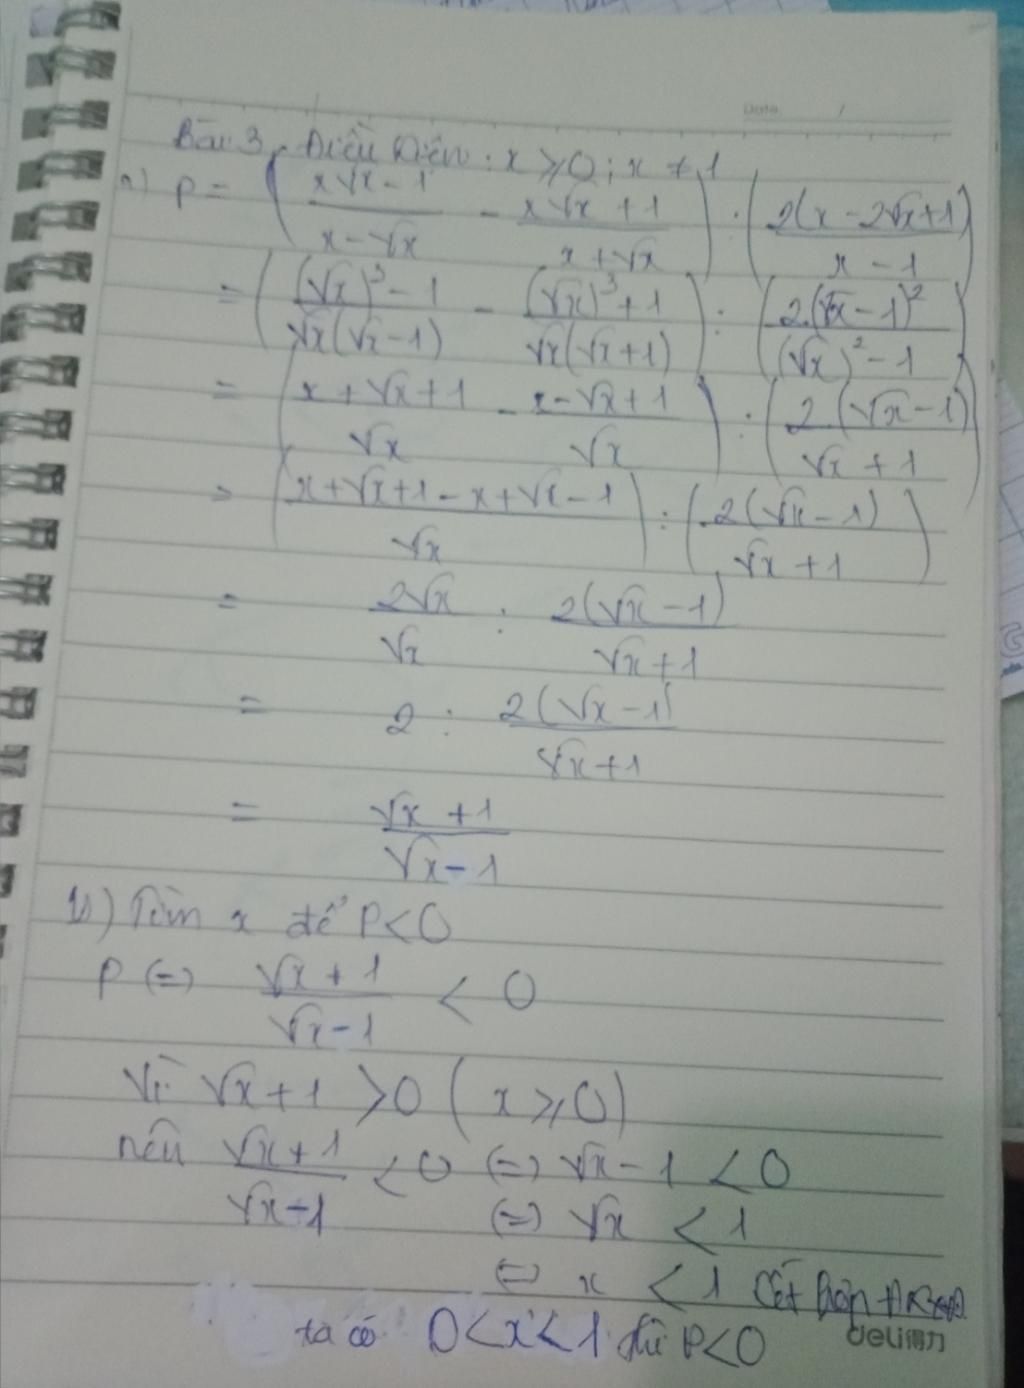 Date /
Bài 3, Điều kiện : x ⩾ 0 ; x ≠ 1
a) P = ( (x√x - 1)/(x - √x) - (x√x + 1)/(x + √x) ) : ( 2(x - 2√x + 1)/(x - 1) )
= ( ((√x)³ - 1)/(√x(√x - 1)) - ((√x)³ + 1)/(√x(√x + 1)) ) : ( 2.(√x - 1)²/((√x)² - 1) )
= ( (x + √x + 1)/√x - (x - √x + 1)/√x ) : ( 2.(√x - 1)/(√x + 1) )
= ( (x + √x + 1 - x + √x - 1)/√x ) : ( 2(√x - 1)/(√x + 1) )
= 2√x/√x : 2(√x - 1)/(√x + 1)
= 2 : 2(√x - 1)/(√x + 1)
= (√x + 1)/(√x - 1)
b) Tìm x để P < 0
P (=) (√x + 1)/(√x - 1) < 0
Vì √x + 1 > 0 ( x ⩾ 0 )
nếu (√x + 1)/(√x - 1) < 0 (=) √x - 1 < 0
(=) √x < 1
(=) x < 1 kết hợp
ta có 0 < x < 1 thì P < 0
deli得力